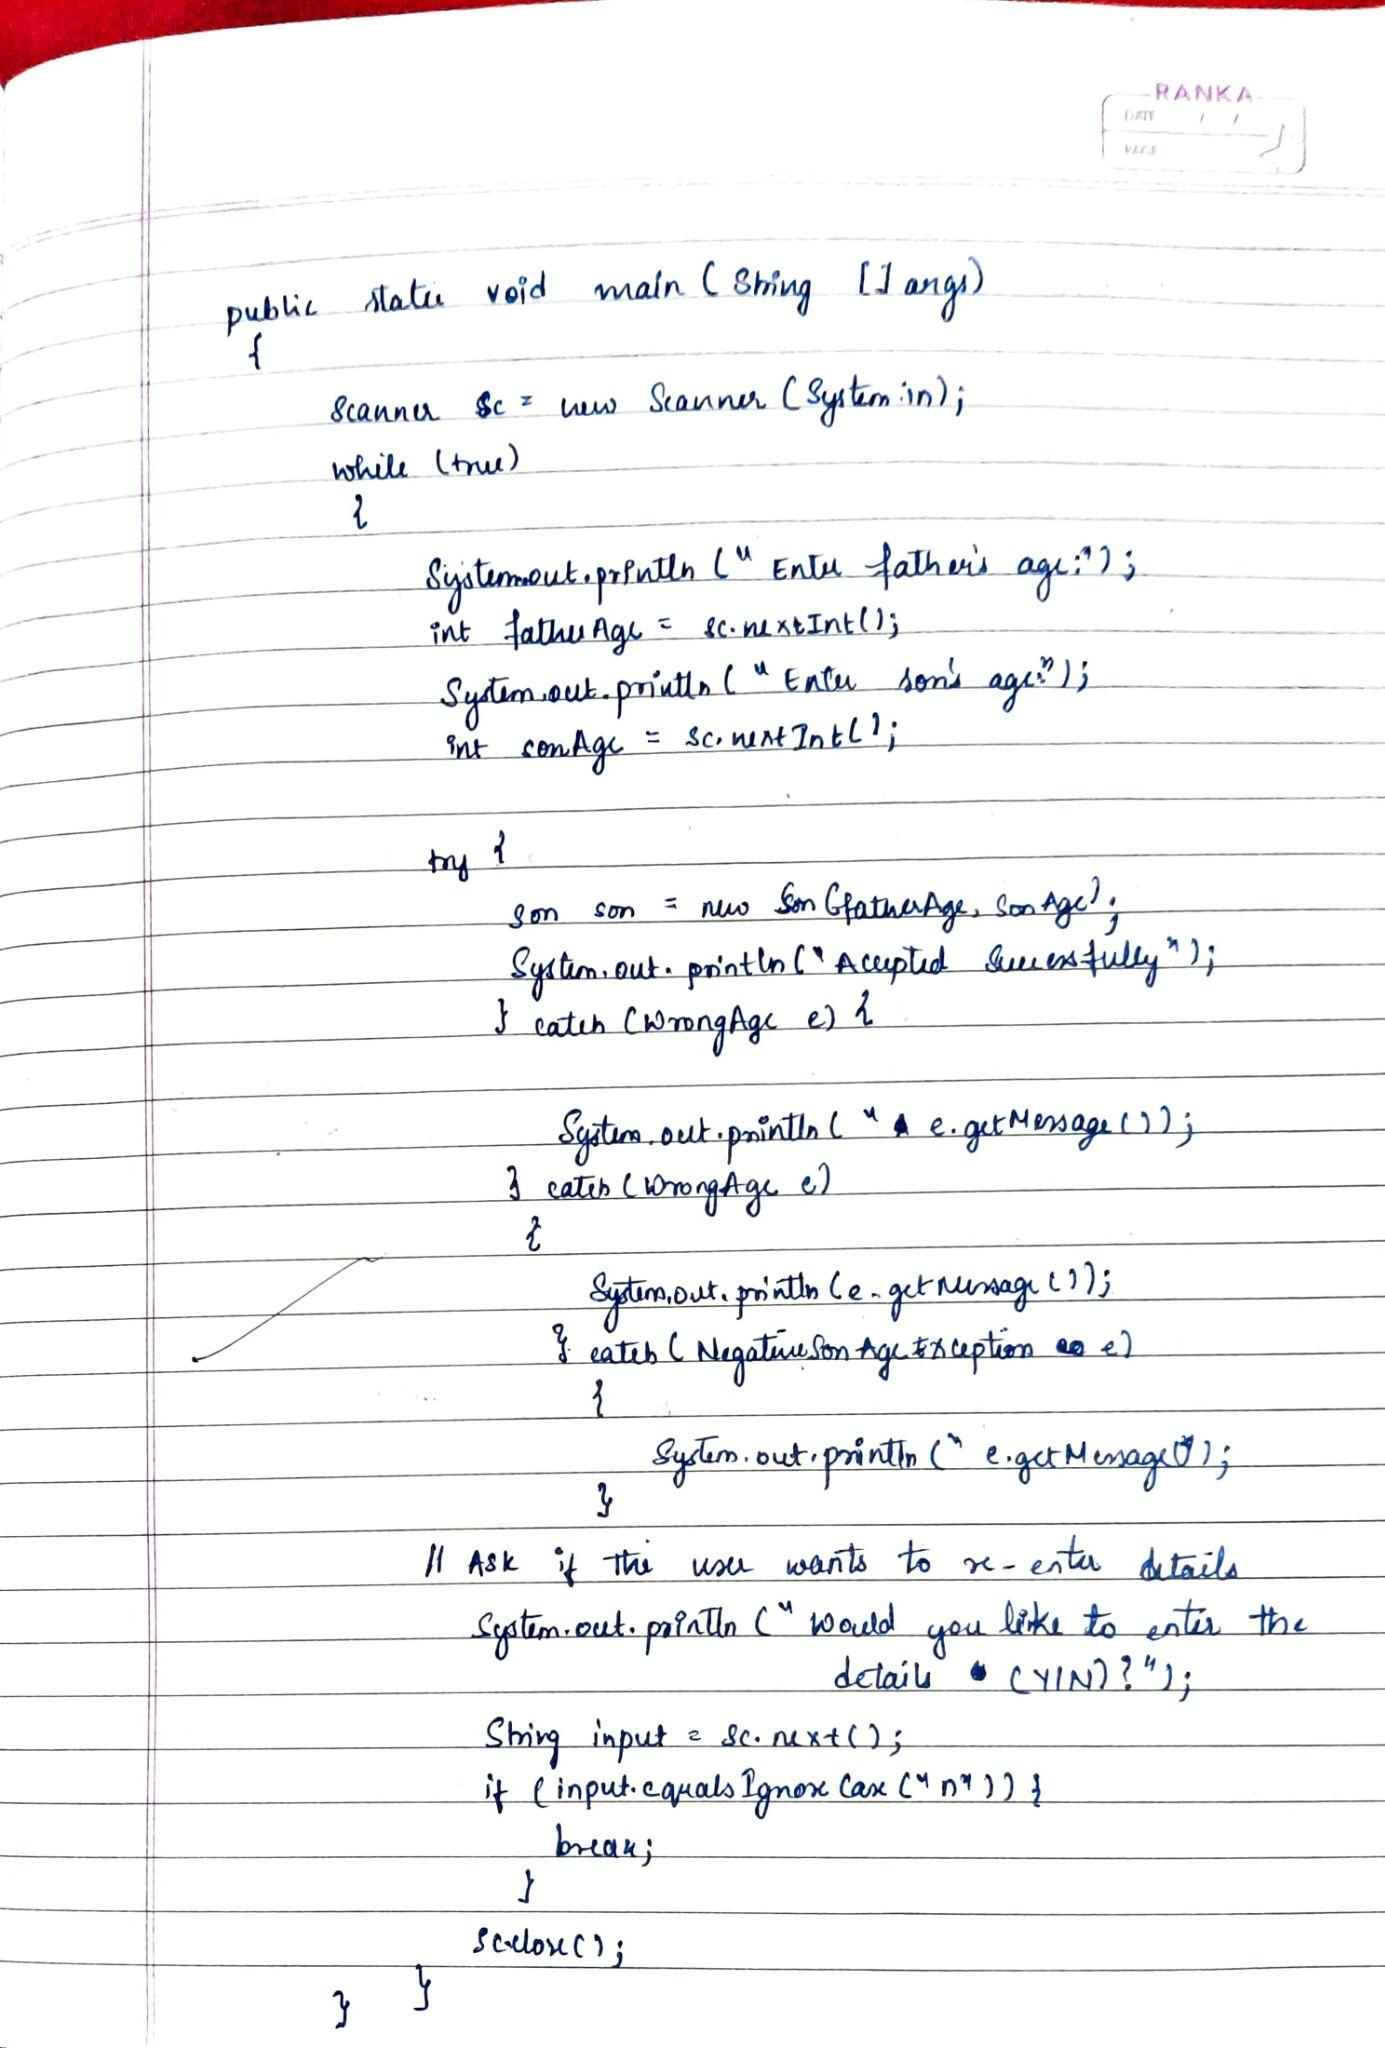 RANKA
DATE / /
PAGE
public static void main (String [] args)
{
Scanner sc = new Scanner (System.in);
while (true)
{
System.out.println (" Enter father's age:");
int fatherAge = sc.nextInt();
System.out.println (" Enter son's age:");
int sonAge = sc.nextInt();
try {
Son son = new Son (fatherAge, SonAge);
System.out.println (" Accepted Successfully ");
} catch (WrongAge e) {
System.out.println ( " e.getMessage());
} catch (WrongAge e)
{
System.out.println (e.getMessage());
} catch ( NegativeSonAgeException e)
{
System.out.println (" e.getMessage()");
}
// Ask if the user wants to re-enter details
System.out.println (" Would you like to enter the
details (Y/N)?");
String input = sc.next();
if (input.equalsIgnoreCase ("n")) {
break;
}
sc.close();
}
}